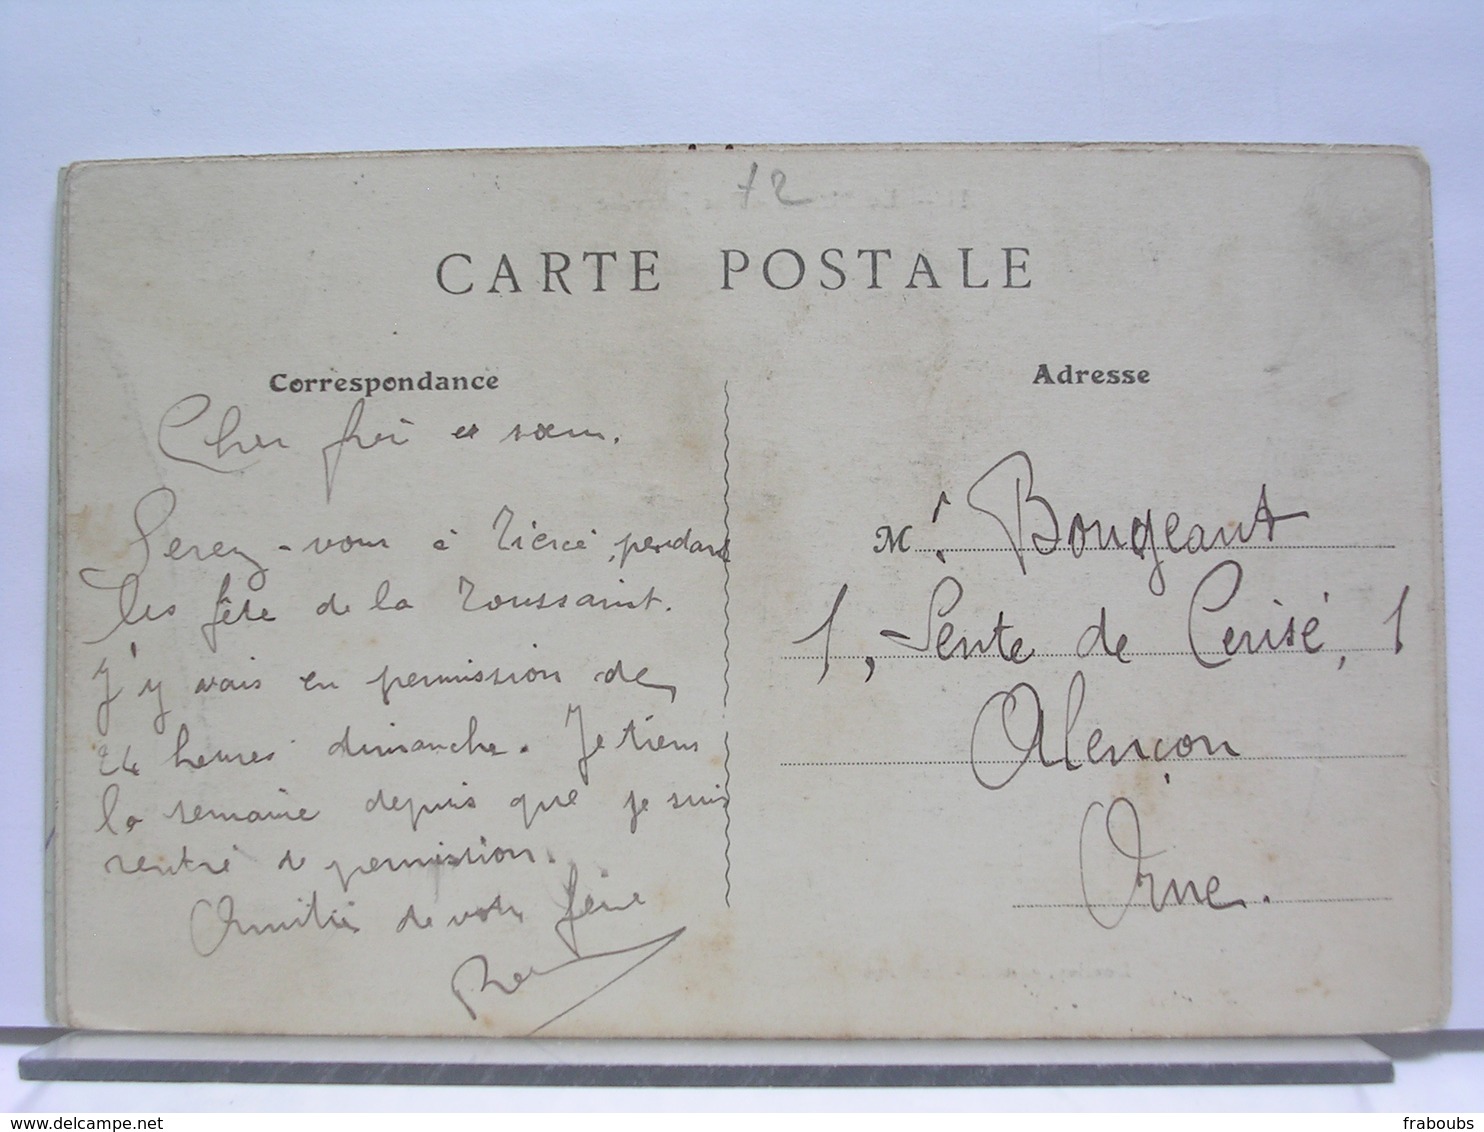 72
CARTE POSTALE
Correspondance
Adresse
Cher frère et sœur.
Serez-vous à Tiercé, pendant
les fête de la Toussaint.
J'y vais en permission de
24 heures dimanche. Je tiens
la semaine depuis que je suis
rentré de permission.
Amitiés de votre frère
René
Mr. Bougeant
1, Sente de Cerisé, 1
Alençon
Orne.
delcampe.net
fraboubs